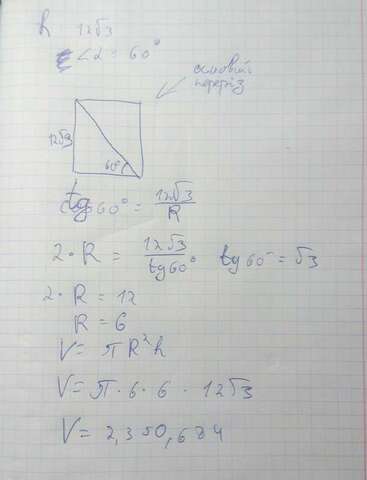 h 12√3
∠α = 60°
осьовий
переріз
12√3
60°
tg 60° = 12√3 / R
2 · R = 12√3 / tg 60° tg 60° = √3
2 · R = 12
R = 6
V = π R² h
V = π · 6 · 6 · 12√3
V = 2,350,684